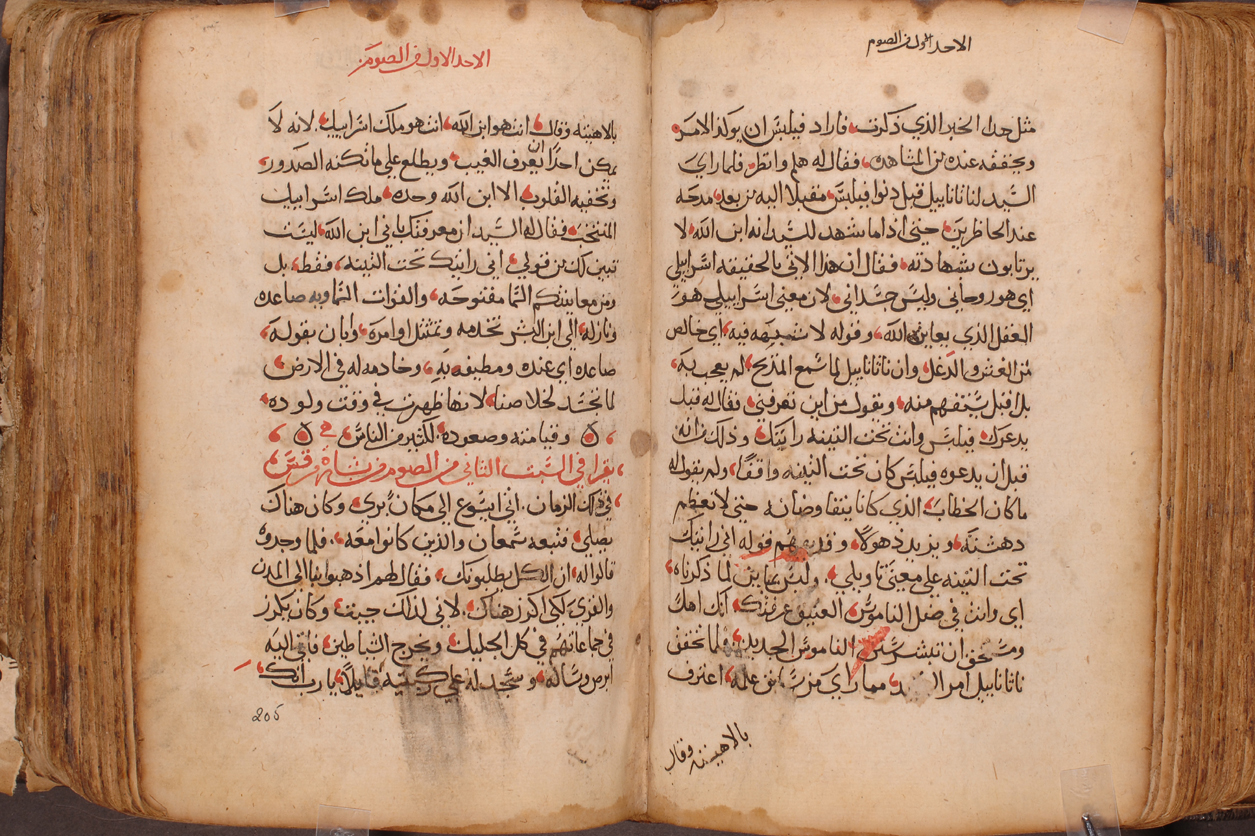 الاحد الاول في الصوم
مثل هذا الخبر الذي ذكرت، فاراد فيلبس ان يوكد الامر
ويحققه عنده من المشاهده، فقال له هلم وانظر فلما راي
السيد لنا ناثاناييل قبل دنوا فيلبس مقبلا اليه من بعد مدحه
عند الحاظرين، حيتي اذا ما شهد للسيد انه ابن الله، لا
يرتابون بشهادته، فقال ان هذا الاتي بالحقيقه اسراييلي
اي هو روحاني وليس جسداني، لان معني اسراييلي هو
العقل الذي يعاين الله، وقوله لا شبهه فيه، اي خالص
من الغش والدغل، وان ناثاناييل لما سمع المديح، لم يعجب به،
بل اقبل يستفهم منه، ويقول من اين تعرفني، فقال له قبل
يدعوك فيلبس وانت تحت التينه رايتك، وذلك انه
قبل ان يدعوه فيلبس كان تحت التينه واقفا، ولم يقول له
ما كان الخطاب، الذي كانا يتفاوضانه حيتي لا تعظم
دهشته، ويزيد ذهولا، و قوله اني رايتك
تحت التينه علي معني تاويلي، وليس مباين لما ذكرناه،
اي وانت في ضل الناموس، العتيق عرفتك، انك اهلا
ومستحق ان تبشر الناموس الجديد، فلما تحقق
ناثاناييل امر السيد، مما راي من علمه، اعترف
بالاهيته وقال
الاحد الاول في الصوم
بالاهيته وقال، انت هو ابن الله، انت هو ملك اسراييل، لانه لا
يمكن احدا ان يعرف الغيب، ويطلع علي ما تكنه الصدور،
وتخفيه القلوب، الا ابن الله وحده، ملك اسراييل
المنتخب، فقال له السيد ان معرفتك باني ابن الله، ليست
تبين لك من قولي، اني رايتك تحت التينه، فقط، بل
ومن معاينتكم السما مفتوحه، والقوات السماويه صاعده
ونازله، الي ابن البشر تخدمه وتمتثل اوامره، وابان بقوله،
صاعده اي عنده ومطيفه به، وخادمه له في الارض
لما تجسد لخلاصنا، لانها ظهرت في وقت ولوده،
وقيامته وصعوده، لكثير من الناس،
يقرا في السبت الثاني من الصوم من بشارة مرقس
في ذلك الزمان، اتي ايسوع الي مكان، بري، وكان هناك
يصلي، فتبعه سمعان والذين كانوا معه، فلما وجدوه
قالوا له، ان الكل يطلبونك، فقال لهم اذهبوا بنا الي المدن
والقري، لكي اكرز هناك، لاني لذلك جيت، وكان يكرز
في جماعاتهم في كل الجليل، ويخرج الشياطين، فاتي اليه
ابرص وساله، وسجد له علي ركبتيه قايلا، يا رب انك
205